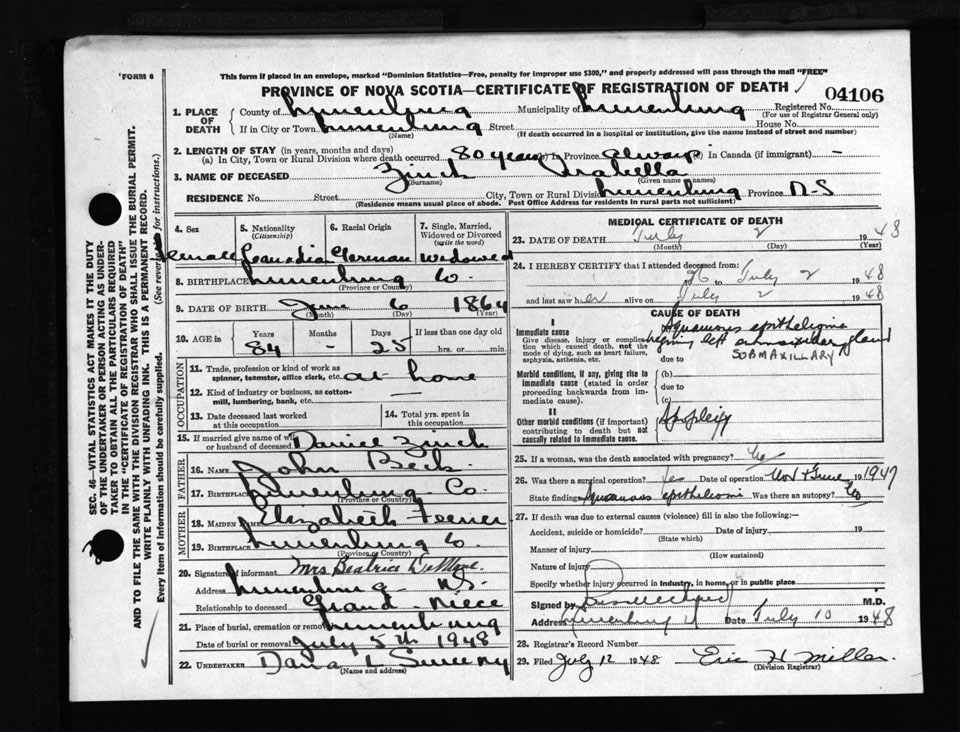 FORM 6
This form if placed in an envelope, marked "Dominion Statistics—Free, penalty for improper use $300," and properly addressed will pass through the mail "FREE"
PROVINCE OF NOVA SCOTIA—CERTIFICATE OF REGISTRATION OF DEATH
04106
1. PLACE OF DEATH
County of Lunenburg Municipality of Lunenburg Registered No.
(For use of Registrar General only)
If in City or Town Lunenburg Street House No.
(Name) (If death occurred in a hospital or institution, give the name instead of street and number)
2. LENGTH OF STAY (in years, months and days)
(a) In City, Town or Rural Division where death occurred 80 years (b) Province always (c) In Canada (if immigrant) -
3. NAME OF DECEASED Zinck Isabella
(Surname) (Given name or names)
RESIDENCE No. Street City, Town or Rural Division Lunenburg Province N S
(Residence means usual place of abode. Post Office Address for residents in rural parts not sufficient)
4. Sex
Female
5. Nationality
(Citizenship)
Canadian
6. Racial Origin
German
7. Single, Married, Widowed or Divorced
(write the word)
Widowed
8. BIRTHPLACE Lunenburg Co.
(Province or Country)
9. DATE OF BIRTH June 6 1864
(Month) (Day) (Year)
10. AGE in Years Months Days If less than one day old
84 - 25 hrs. or min.
OCCUPATION
11. Trade, profession or kind of work as spinner, teamster, office clerk, etc. at home
12. Kind of industry or business, as cotton-mill, lumbering, bank, etc. —
13. Date deceased last worked at this occupation
14. Total yrs. spent in this occupation
15. If married give name of wife or husband of deceased Daniel Zinck
FATHER
16. NAME John Beck
17. BIRTHPLACE Lunenburg Co.
(Province or Country)
MOTHER
18. MAIDEN NAME Elizabeth Feener
19. BIRTHPLACE Lunenburg Co.
(Province or Country)
20. Signature of informant Mrs Beatrice
Address Lunenburg N.S.
Relationship to deceased Grand-Niece
21. Place of burial, cremation or removal Lunenburg
Date of burial or removal July 5th 1948
22. UNDERTAKER Dana L Sweeny
(Name and address)
MEDICAL CERTIFICATE OF DEATH
23. DATE OF DEATH July 2 1948
(Month) (Day) (Year)
24. I HEREBY CERTIFY that I attended deceased from:
26 to July 2 1948
and last saw her alive on July 2 1948
CAUSE OF DEATH
I
Immediate cause
Give disease, injury or complication which caused death, not the mode of dying, such as heart failure, asphyxia, asthenia, etc.
Squamous epithelioma
left submaxillary gland
due to SUBMAXILLARY
Morbid conditions, if any, giving rise to immediate cause (stated in order proceeding backwards from immediate cause).
(b)
due to
(c)
II
Other morbid conditions (if important) contributing to death but not causally related to immediate cause.
Apoplexy
25. If a woman, was the death associated with pregnancy? No
26. Was there a surgical operation? Yes Date of operation June 1947
State findings Squamous epithelioma Was there an autopsy? No
27. If death was due to external causes (violence) fill in also the following:—
Accident, suicide or homicide? Date of injury 19
(State which)
Manner of injury
(How sustained)
Nature of injury
Specify whether injury occurred in Industry, in home, or in public place
Signed by M.D.
Address Lunenburg Date July 10 1948
28. Registrar's Record Number
29. Filed July 12 1948 Eric H Miller
(Division Registrar)
SEC. 46—VITAL STATISTICS ACT MAKES IT THE DUTY
OF THE UNDERTAKER OR PERSON ACTING AS UNDER-
TAKER TO OBTAIN ALL THE PARTICULARS REQUIRED
IN THE "CERTIFICATE OF REGISTRATION OF DEATH"
AND TO FILE THE SAME WITH THE DIVISION REGISTRAR WHO SHALL ISSUE THE BURIAL PERMIT.
WRITE PLAINLY WITH UNFADING INK. THIS IS A PERMANENT RECORD.
Every item of information should be carefully supplied. (See reverse for instructions.)